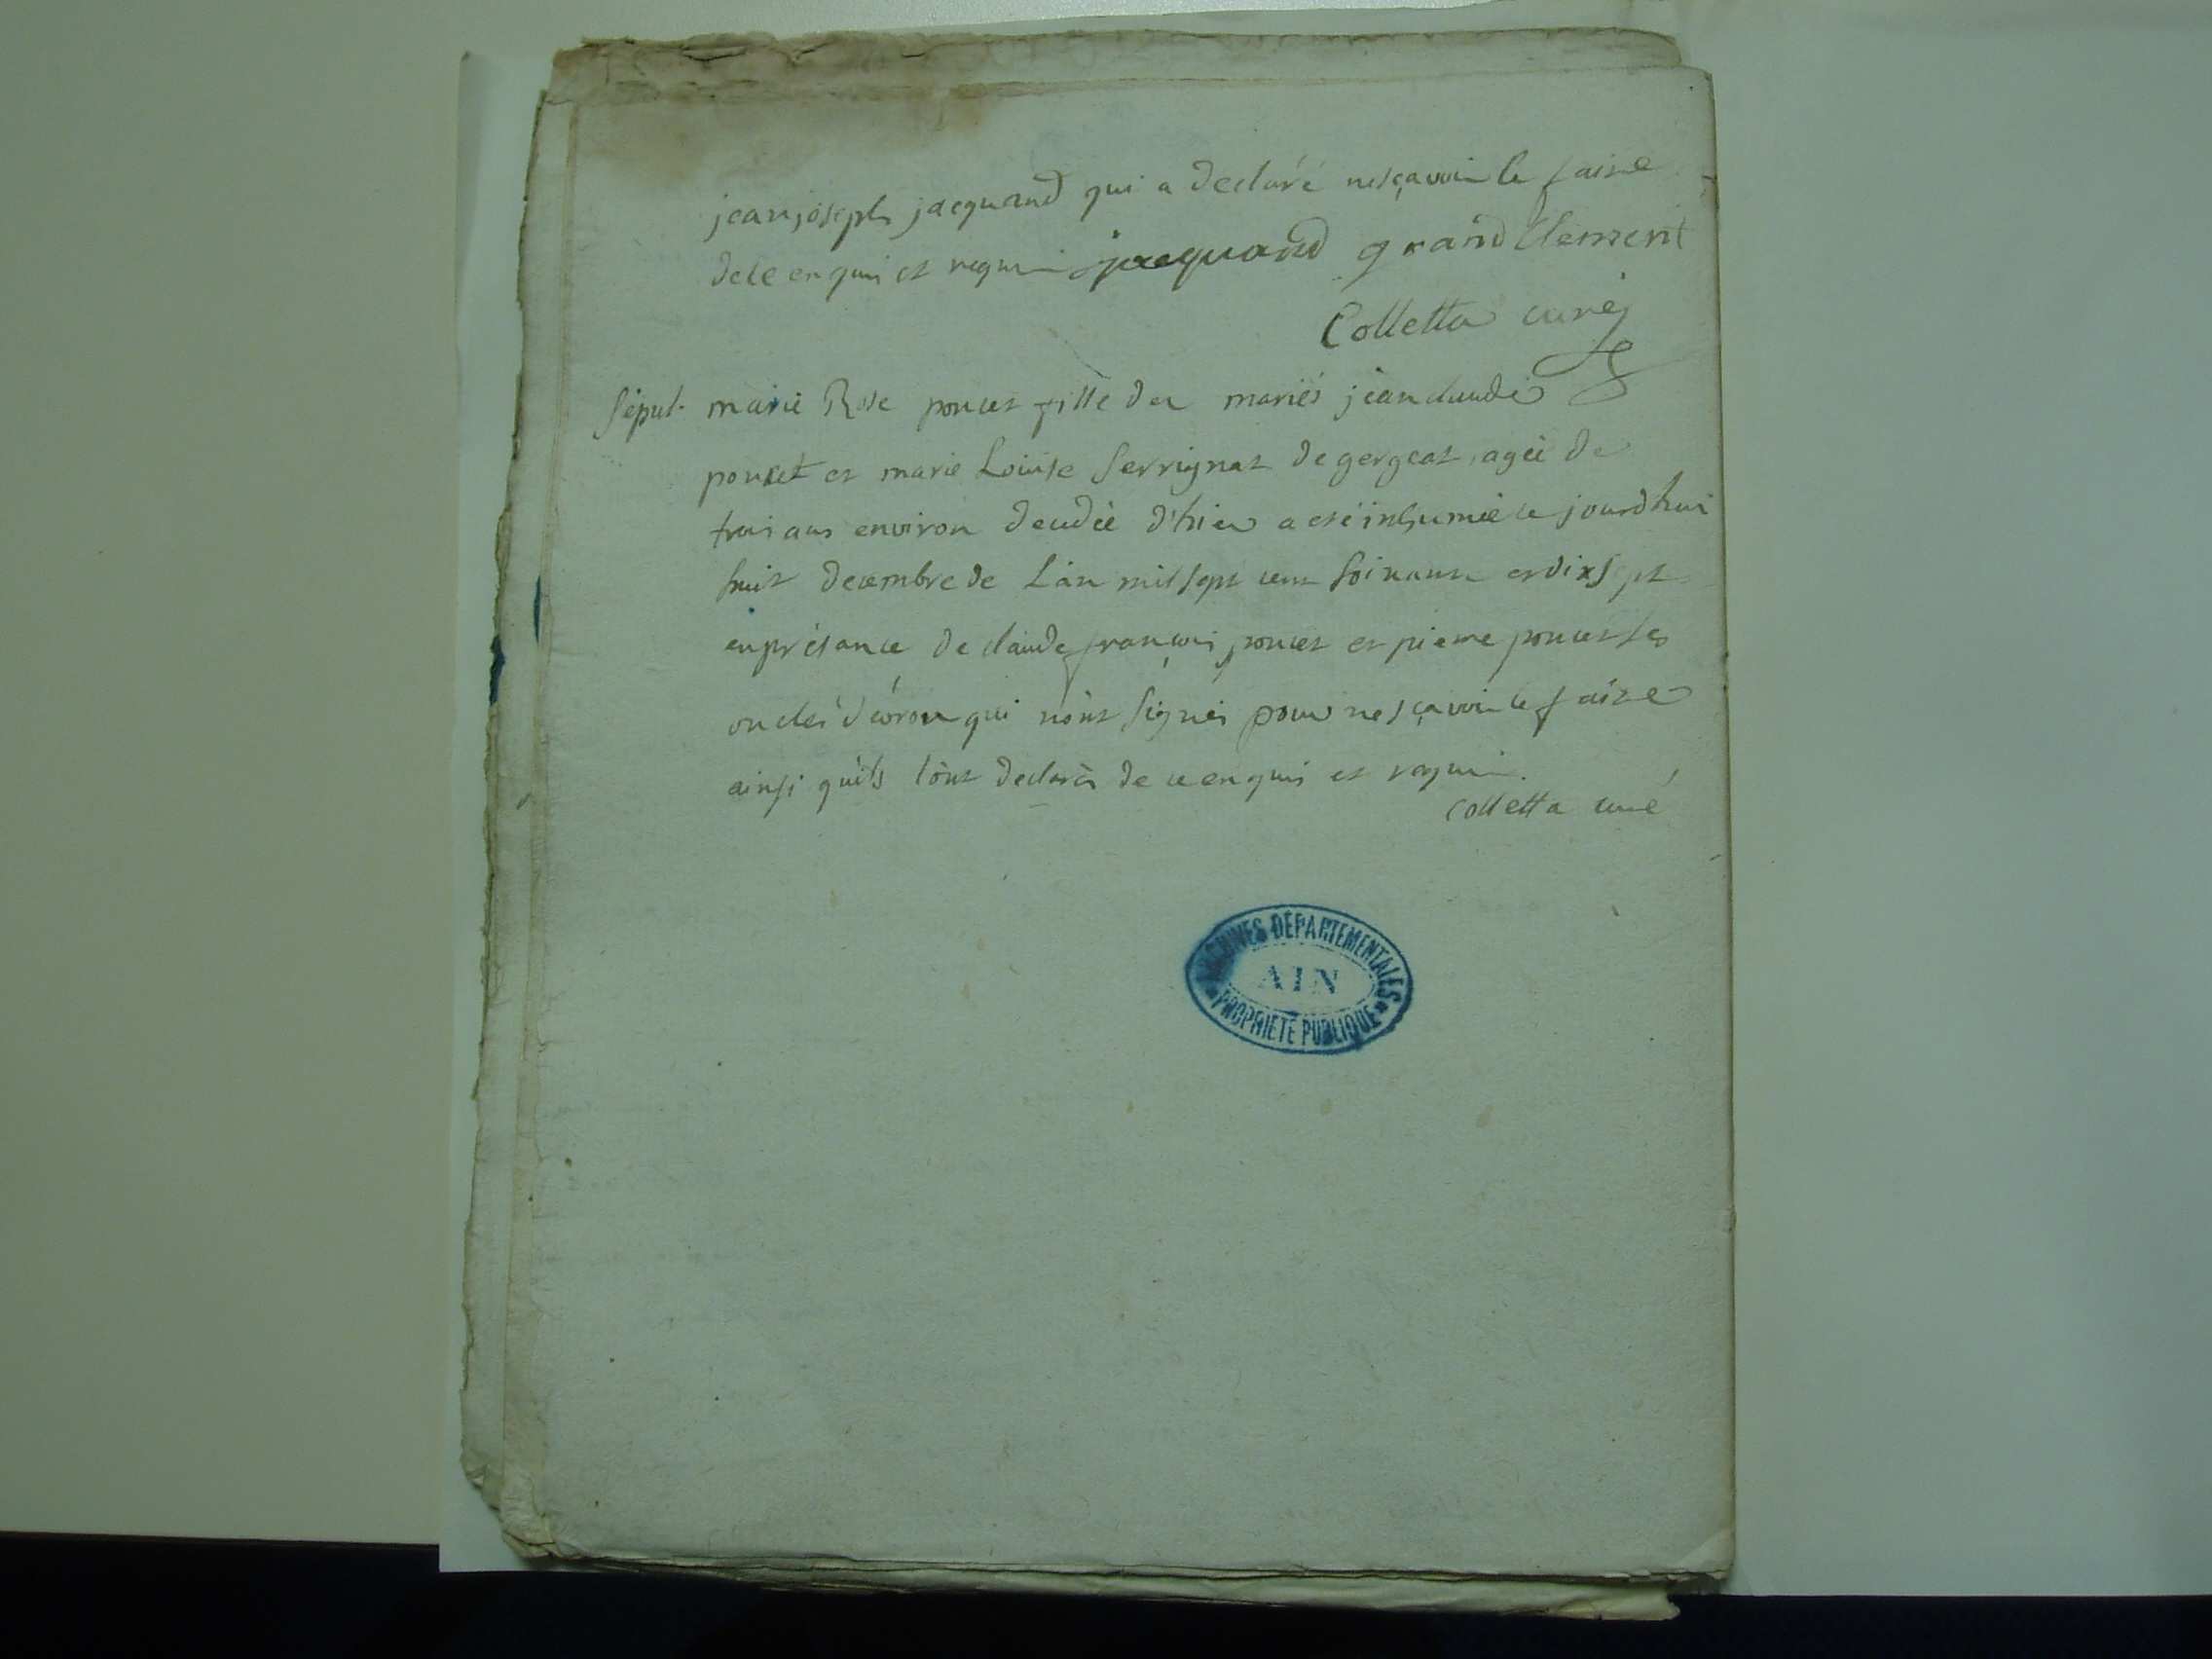 jean joseph jacquand qui a declaré ne sçavoir le faire
de ce enquis et requis jacquand grand Clement
Colletta curé
sépul. marie Rose poncet fille des mariés jean claude
poncet et marie Louise Serrignat de gergeat, agée de
trois ans environ decedée d'hier a eté inhumée ce jourd'hui
huit decembre de L'an mil sept cent soixante et dix sept
en présance de claude françois poncet et pierre poncet ses
oncles d'éoron qui n'ont signés pour ne sçavoir le faire
ainsi qu'ils l'ont declarés de ce enquis et requis.
Colletta curé
ARCHIVES DÉPARTEMENTALES
AIN
PROPRIÉTÉ PUBLIQUE